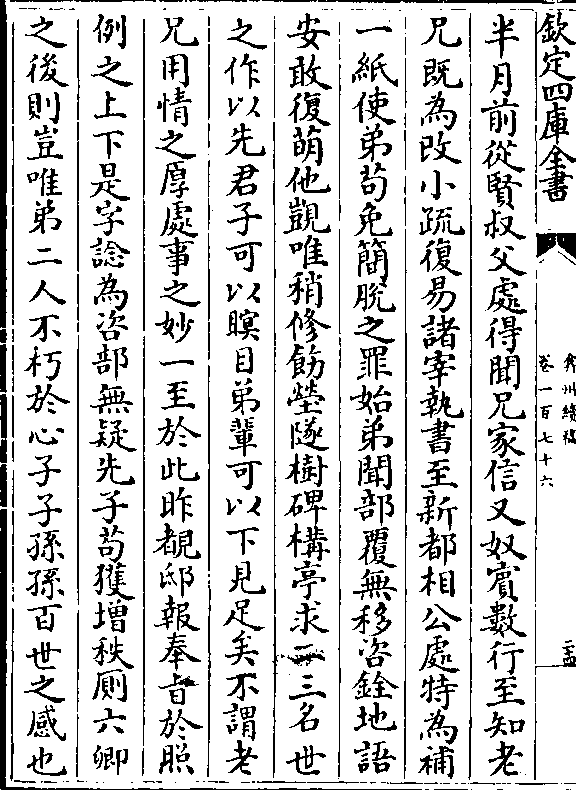 欽定四庫全書
弇州續稿
卷一百七十六
半月前從賢叔父處得聞兄家信又奴賔數行至知老
兄既為改小疏復易諸宰執書至新都相公處特為補
一紙使弟茍免簡脫之罪始弟聞部覆無移咨銓地語
安敢復萌他覬唯稍修飭塋隧樹碑構亭求一二三名世
之作以先君子可以瞑目弟輩可以下見足矣不謂老
兄用情之厚處事之妙一至於此昨覩邸報奉旨於照
例之上下是字諗為咨部無疑先子茍獲增秩厠六卿
之後則豈唯弟二人不朽於心子子孫孫百世之感也